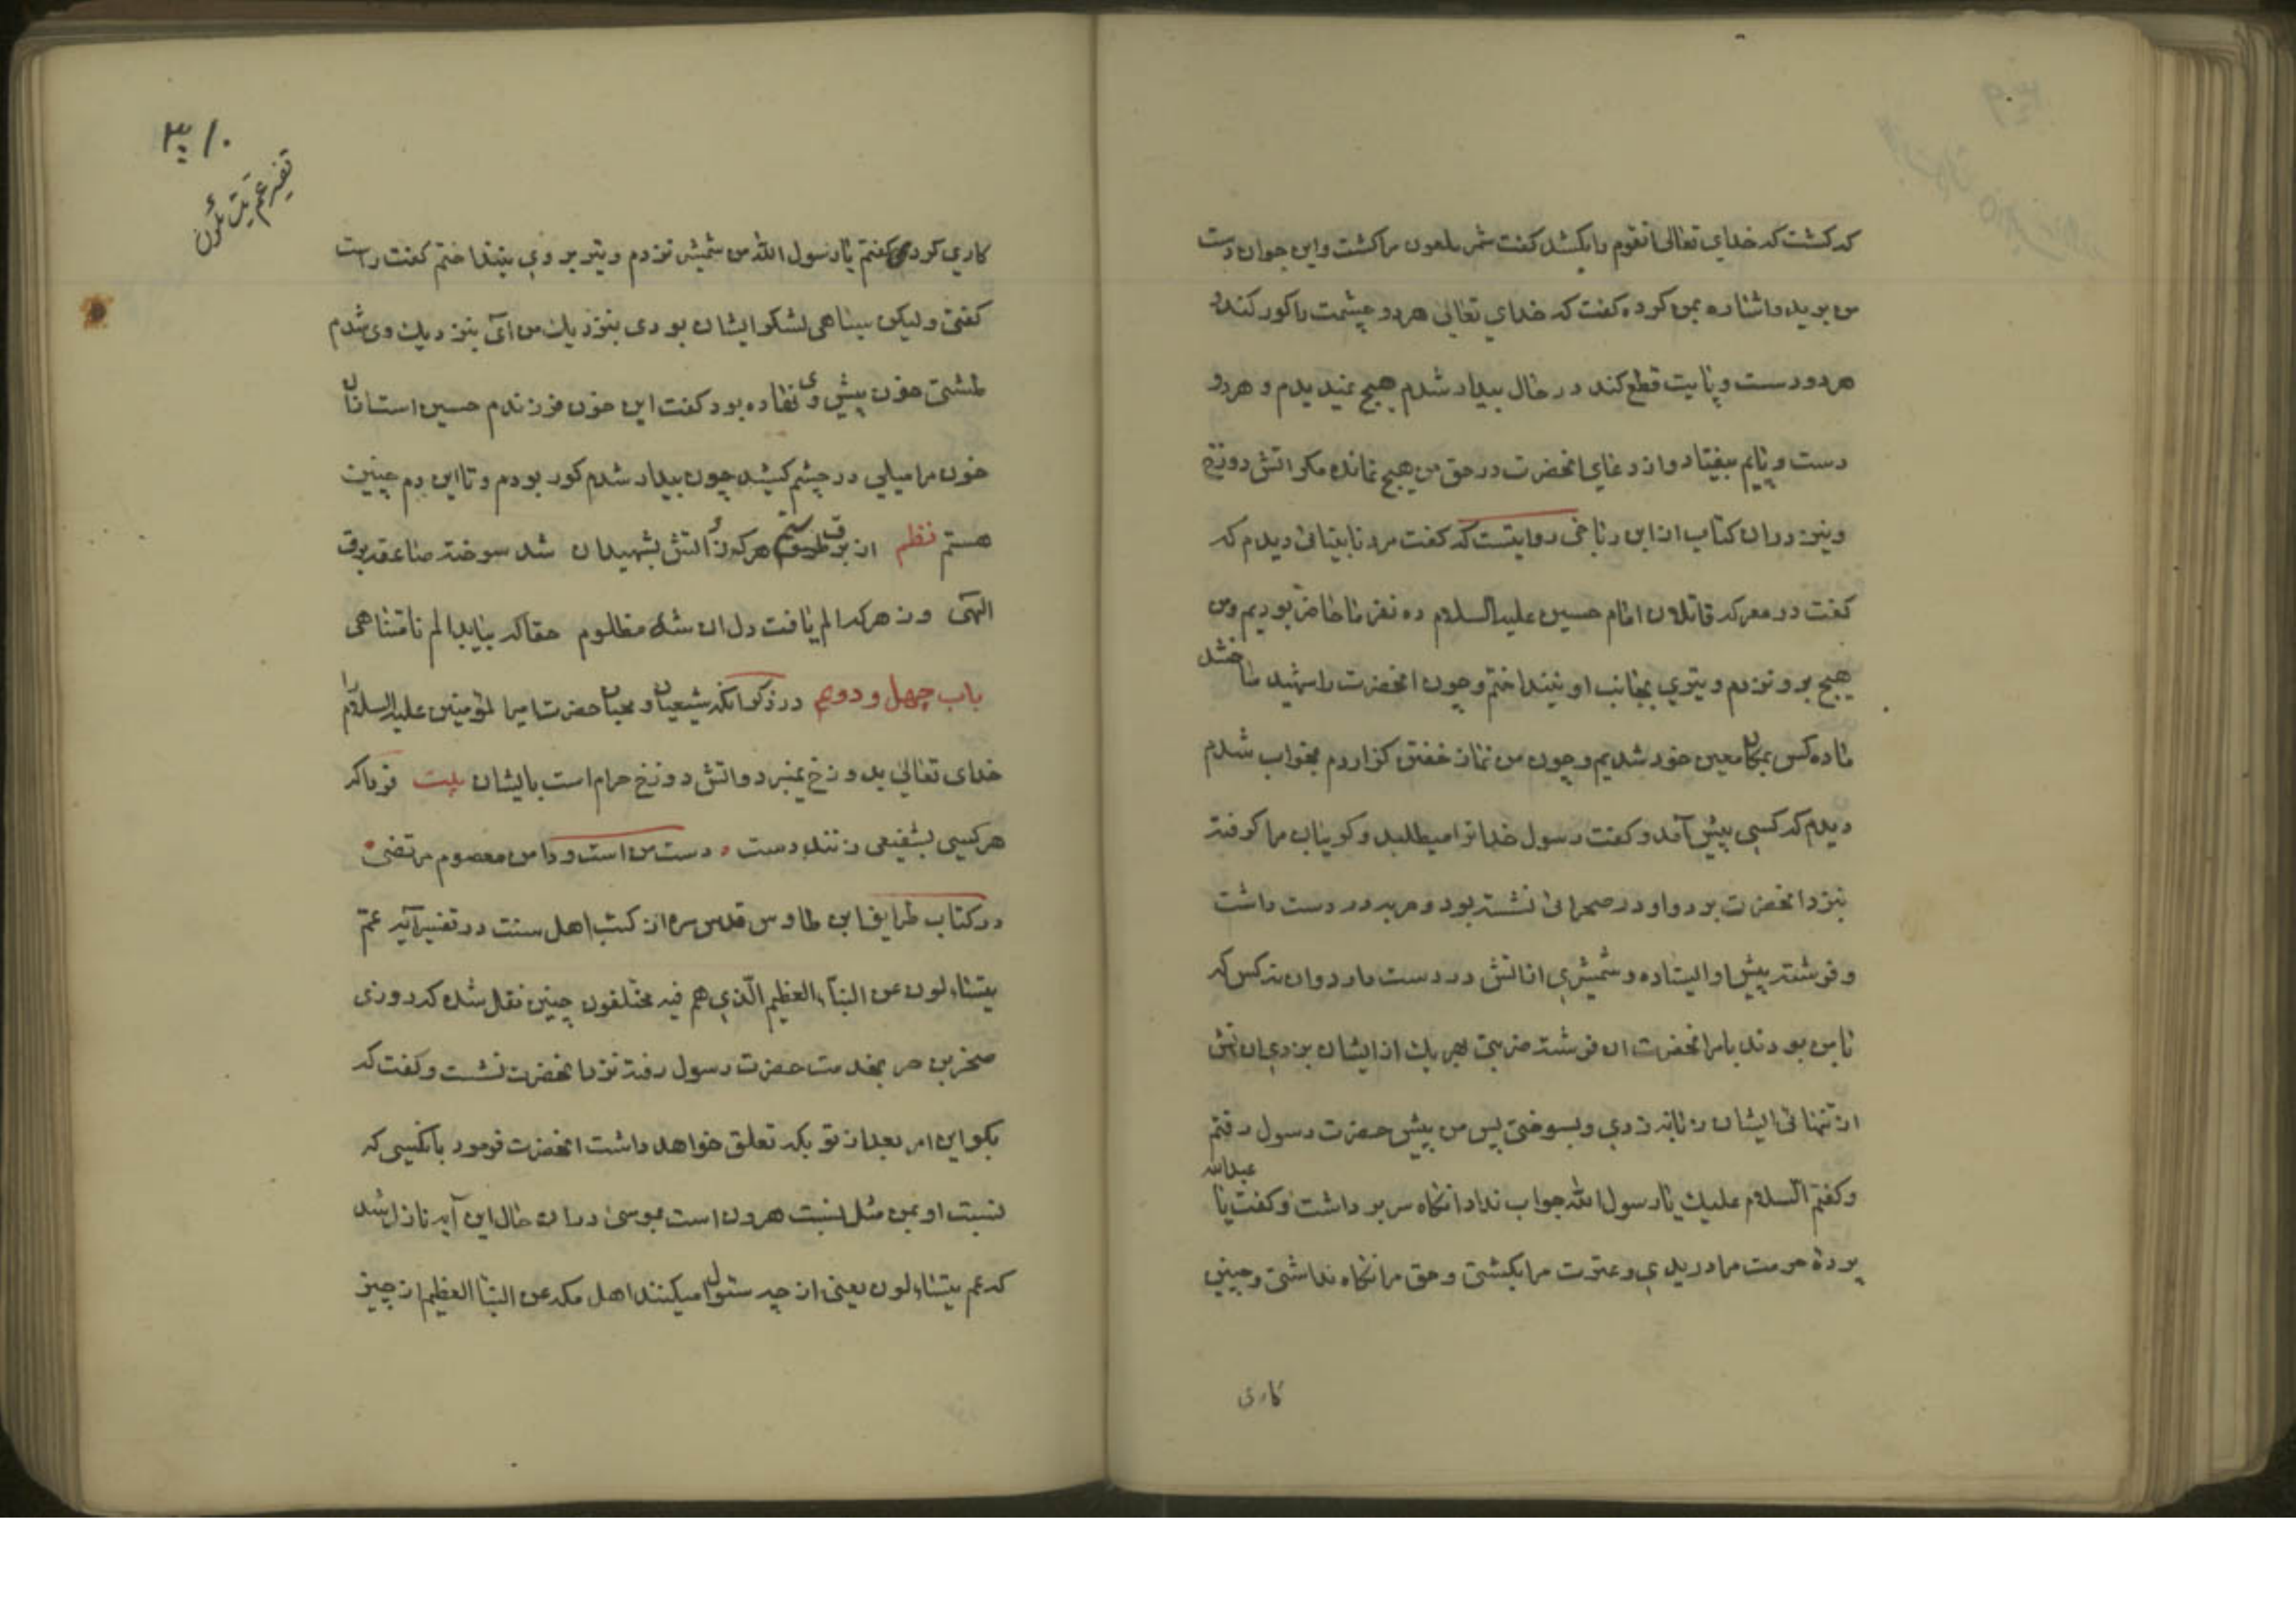 که کشت که خدای تعالی انقوم را بکشد کفت شمر ملعون مرا کشت و این جوان دست
من برید و اشاره بمن کرده کفت که خدای تعالی هر دو چشمت را کور کند و
هر دو دست و پایت قطع کند در حال بیدار شدم هیچ نمیدیدم و هر دو
دست و پایم بیفتاد و از دعای انحضرت در حق من هیچ نمانده مکر اتش دوزخ
و نیز در ان کتاب از ابن رباحی روایتست که کفت مرد نابینائی دیدم که
کفت در معرکه قاتلان امام حسین علیه السلام ده نفر ما حاضر بودیم و من
هیچ بر و نزدم و تیری بجانب او نینداختم و چون انحضرت را شهید ساختند
ما ده کس بمکان معین خود شدیم و چون من نماز خفتن کزاردم بخواب شدم
دیدم که کسی پیش آمد و کفت رسول خدا ترا میطلبد و کریبان مرا کرفته
نزد انحضرت برد و او در صحرائی نشسته بود و حربه در دست داشت
و فرشته پیش او ایستاده و شمشیری از اتش در دست دارد و ان نه کس که
با من بودند بامر انحضرت ان فرشته ضربتی بهر یک از ایشان بزدی ان اتش
از تنهائی ایشان زبانه زدی و بسوختی پس من پیش حضرت رسول رفتم
و کفتم السلام علیک یا رسول الله جواب نداد انکاه سر برداشت و کفت یا عبدالله
پرده حرمت مرا دریدی و عترت مرا بکشتی و حق مرا نکاه نداشتی و چنین
کاری
۳۱۰
تفسیر عم یتسائلون
کاری کردی کفتم یا رسول الله من شمشیر نزدم و تیر بر وی نینداختم کفت راست
کفتی و لیکن سیاهی لشکر ایشان بودی بنزدیک من آی بنزدیک وی شدم
طشتی خون پیش وی نهاده بود کفت این خون فرزندم حسین است از ان
خون مرا میلی در چشم کشید چون بیدار شدم کور بودم و تا این دم چنین
هستم نظم از برق ستم هر که زد آتش بشهیدان شد سوخته صاعقه برق
الهی وز هر که الم یافت دل ان شه مظلوم حقا که بیابد الم نامتناهی
باب چهل و دویم در ذکر انکه شیعیان و محبان حضرت امیر المؤمنین علیه السلام را
خدای تعالی بدوزخ نمیبرد و اتش دوزخ حرام است بایشان بیت فردا که
هر کسی بشفیعی زنند دست دست من است و دامن معصوم مرتضی
در کتاب طرایف ابن طاوس قدس سره از کتب اهل سنت در تفسیر آیه عم
یتساءلون عن النبأ العظیم الّذی هم فیه مختلفون چنین نقل شده که روزی
صخر بن حرب بخدمت حضرت رسول رفته نزد انحضرت نشست و کفت که
بکو این امر بعد از تو بکه تعلق خواهد داشت انحضرت فرمود بانکسی که
نسبت او بمن مثل نسبت هرون است بموسی در ان حال این آیه نازل شد
که عم یتساءلون یعنی از چه سئوال میکنند اهل مکه عن النبا العظیم از چیز